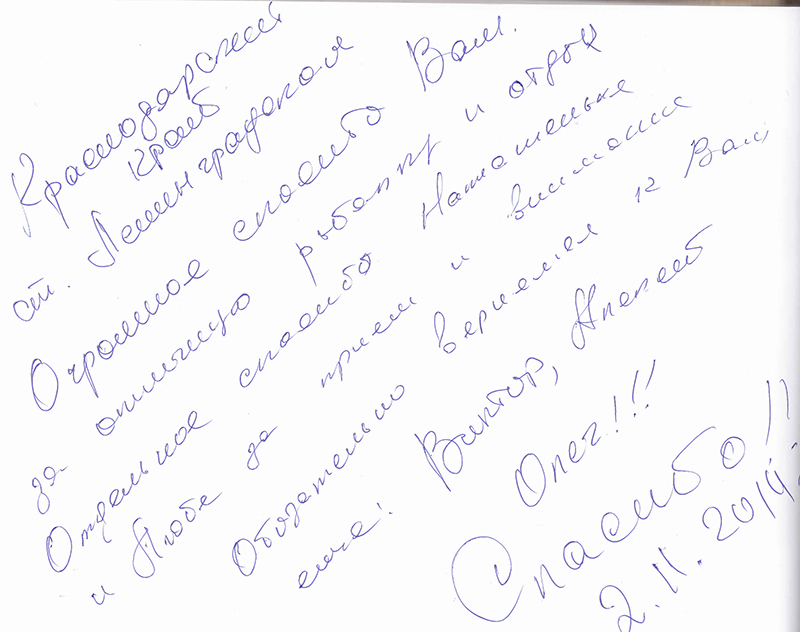 Краснодарский
край
ст. Ленинградская
Огромное спасибо Вам.
за отличную рыбалку и отдых
Отдельное спасибо Наташеньке
и Любе за прием и внимание
Обязательно вернемся к Вам
еще! Виктор, Алексей
Олег!!!
Спасибо!!
2.11.2014.